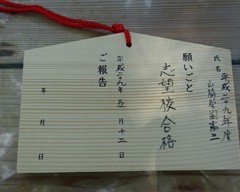 氏名 平成二九年度
願いごと
志望校合格
平成二九年五月十二日
ご報告
年 月 日